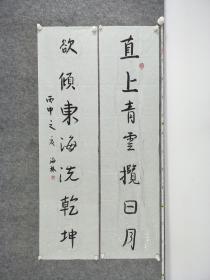 直上青雲攬日月
欲傾東海洗乾坤
丙申之夏 海林